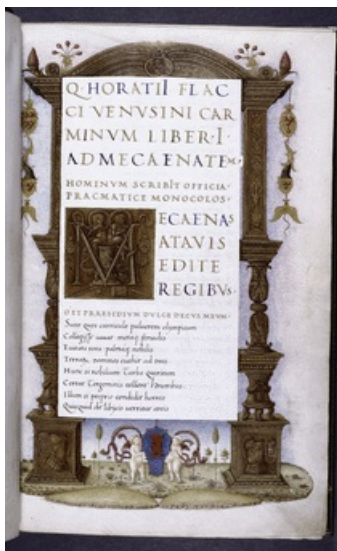 Q·HORATII FLAC
CI VENUSINI CAR
MINVM LIBER·I·
AD MECAENATEM·
HOMINVM SCRIBIT OFFICIA·
PRAGMATICE MONOCOLOS·
MECAENAS
ATAVIS
EDITE
REGIBVS·
O ET PRAESIDIVM DVLCE DECVS MEVM·
Sunt quos curriculo pulverem olympicum
Collegisse iuvat metaq; fervidis
Evitata rotis palmaq; nobilis
Terrarum dominos evehit ad deos
Hunc si mobilium Turba Quiritium
Certat Tergeminis tollere honoribus
Illum si proprio condidit horreo
Quicquid de libycis verritur areis